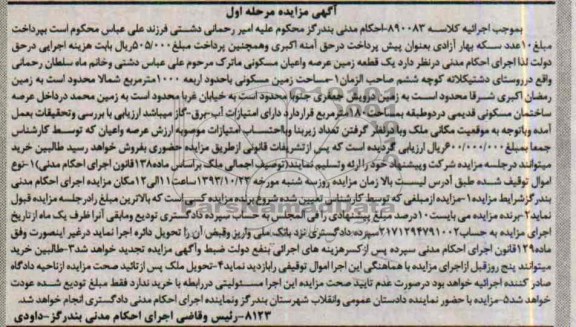 آگهی مزایده مرحله اول
بموجب اجرائیه کلاسه ۸۹۰۰۸۳-احکام مدنی بندرگز محکوم علیه امیر رحمانی دشتی فرزند علی عباس محکوم است بپرداخت
مبلغ۱۰عدد سکه بهار آزادی بعنوان پیش پرداخت درحق آمنه اکبری وهمچنین پرداخت مبلغ۵۰۵/۰۰۰ریال بابت هزینه اجرایی درحق
دولت لذا اجرای احکام مدنی درنظر دارد یک قطعه زمین عرصه واعیان مسکونی ماترک مرحوم علی عباس دشتی وخانم ماه سلطان رحمانی
واقع درروستای دشتیکلاته کوچه ششم صاحب الزمان۱-مساحت زمین مسکونی باحدود اربعه ۱۰۰۰مترمربع شمالا محدود است به زمین
رمضان اکبری شرقا محدود است به زمین درویش جعفری جنوبا محدود است به خیابان غربا محدود است به زمین محمد درداخل عرصه
ساختمان مسکونی قدیمی دردوطبقه بمساحت۱۸۰مترمربع قراردارد دارای امتیازات آب-برق-گاز میباشد ارزیابی با بررسی وتحقیقات بعمل
آمده وباتوجه به موقعیت مکانی ملک وبا درنظر گرفتن تعداد زیربنا وبااحتساب امتیازات موصوبه ارزش عرصه واعیان که توسط کارشناس
جمعا بمبلغ۶۰۰/۰۰۰/۰۰۰ریال ارزیابی گردیده است که پس ازتشریفات قانونی ازطریق مزایده حضوری بفروش خواهد رسید طالبین خرید
میتوانند درجلسه مزایده شرکت وپیشنهاد خود را ارئه وتسلیم نمایند(توصیف اجمالی ملک براساس ماده۱۳۸قانون اجرای احکام مدنی)۱-نوع
اموال توقیف شده طبق آدرس لیست بالا زمان مزایده روزسه شنبه مورخه ۱۳۹۳/۱۰/۲۳ساعت۱۱الی۱۲مکان مزایده اجرای احکام مدنی
بندرگز شرایط مزایده۱-مزایده ازمبلغی که توسط کارشناس تعیین شده شروع برنده مزایده کسی است که بالاترین مبلغ رادرجلسه مزایده قبول
نماید۲-برنده مزایده می بایست۱۰درصد مبلغ پیشنهادی رافی المجلس بحساب سپرده دادگستری تودیع ومابقی آنرا ظرف یک ماه ازتاریخ
اجرای مزایده به حساب۲۱۷۱۲۹۴۷۹۱۰۰۲سپرده دادگستری نزد بانک ملی واریز وقبض آن را تحویل دائره اجرا نماید درغیر اینصورت وفق
ماده۱۲۹قانون اجرای احکام مدنی سپرده پس ازکسرهزینه های اجرائی بنفع دولت ضبط وآگهی مزایده تجدید خواهد شد۳-طالبین خرید
میتوانند پنج روزقبل ازاجرای مزایده با هماهنگی این اجرا اموال توقیفی رابازدید نماید۴-تحویل ملک پس ازتائید صحت مزایده ازناحیه دادگاه
صادر کننده اجرائیه خواهد بود درصورت عدم تایید صحت مزایده این اجرا مسئولیتی دررابطه با خرید ندارد فقط مبلغ تودیع شده عودت
خواهد شد۵-مزایده با حضور نماینده دادستان عمومی وانقلاب شهرستان بندرگز ونماینده اجرای احکام مدنی دادگستری انجام خواهد شد.
۸۱۲۳-رئیس وقاضی اجرای احکام مدنی بندرگز-داودی